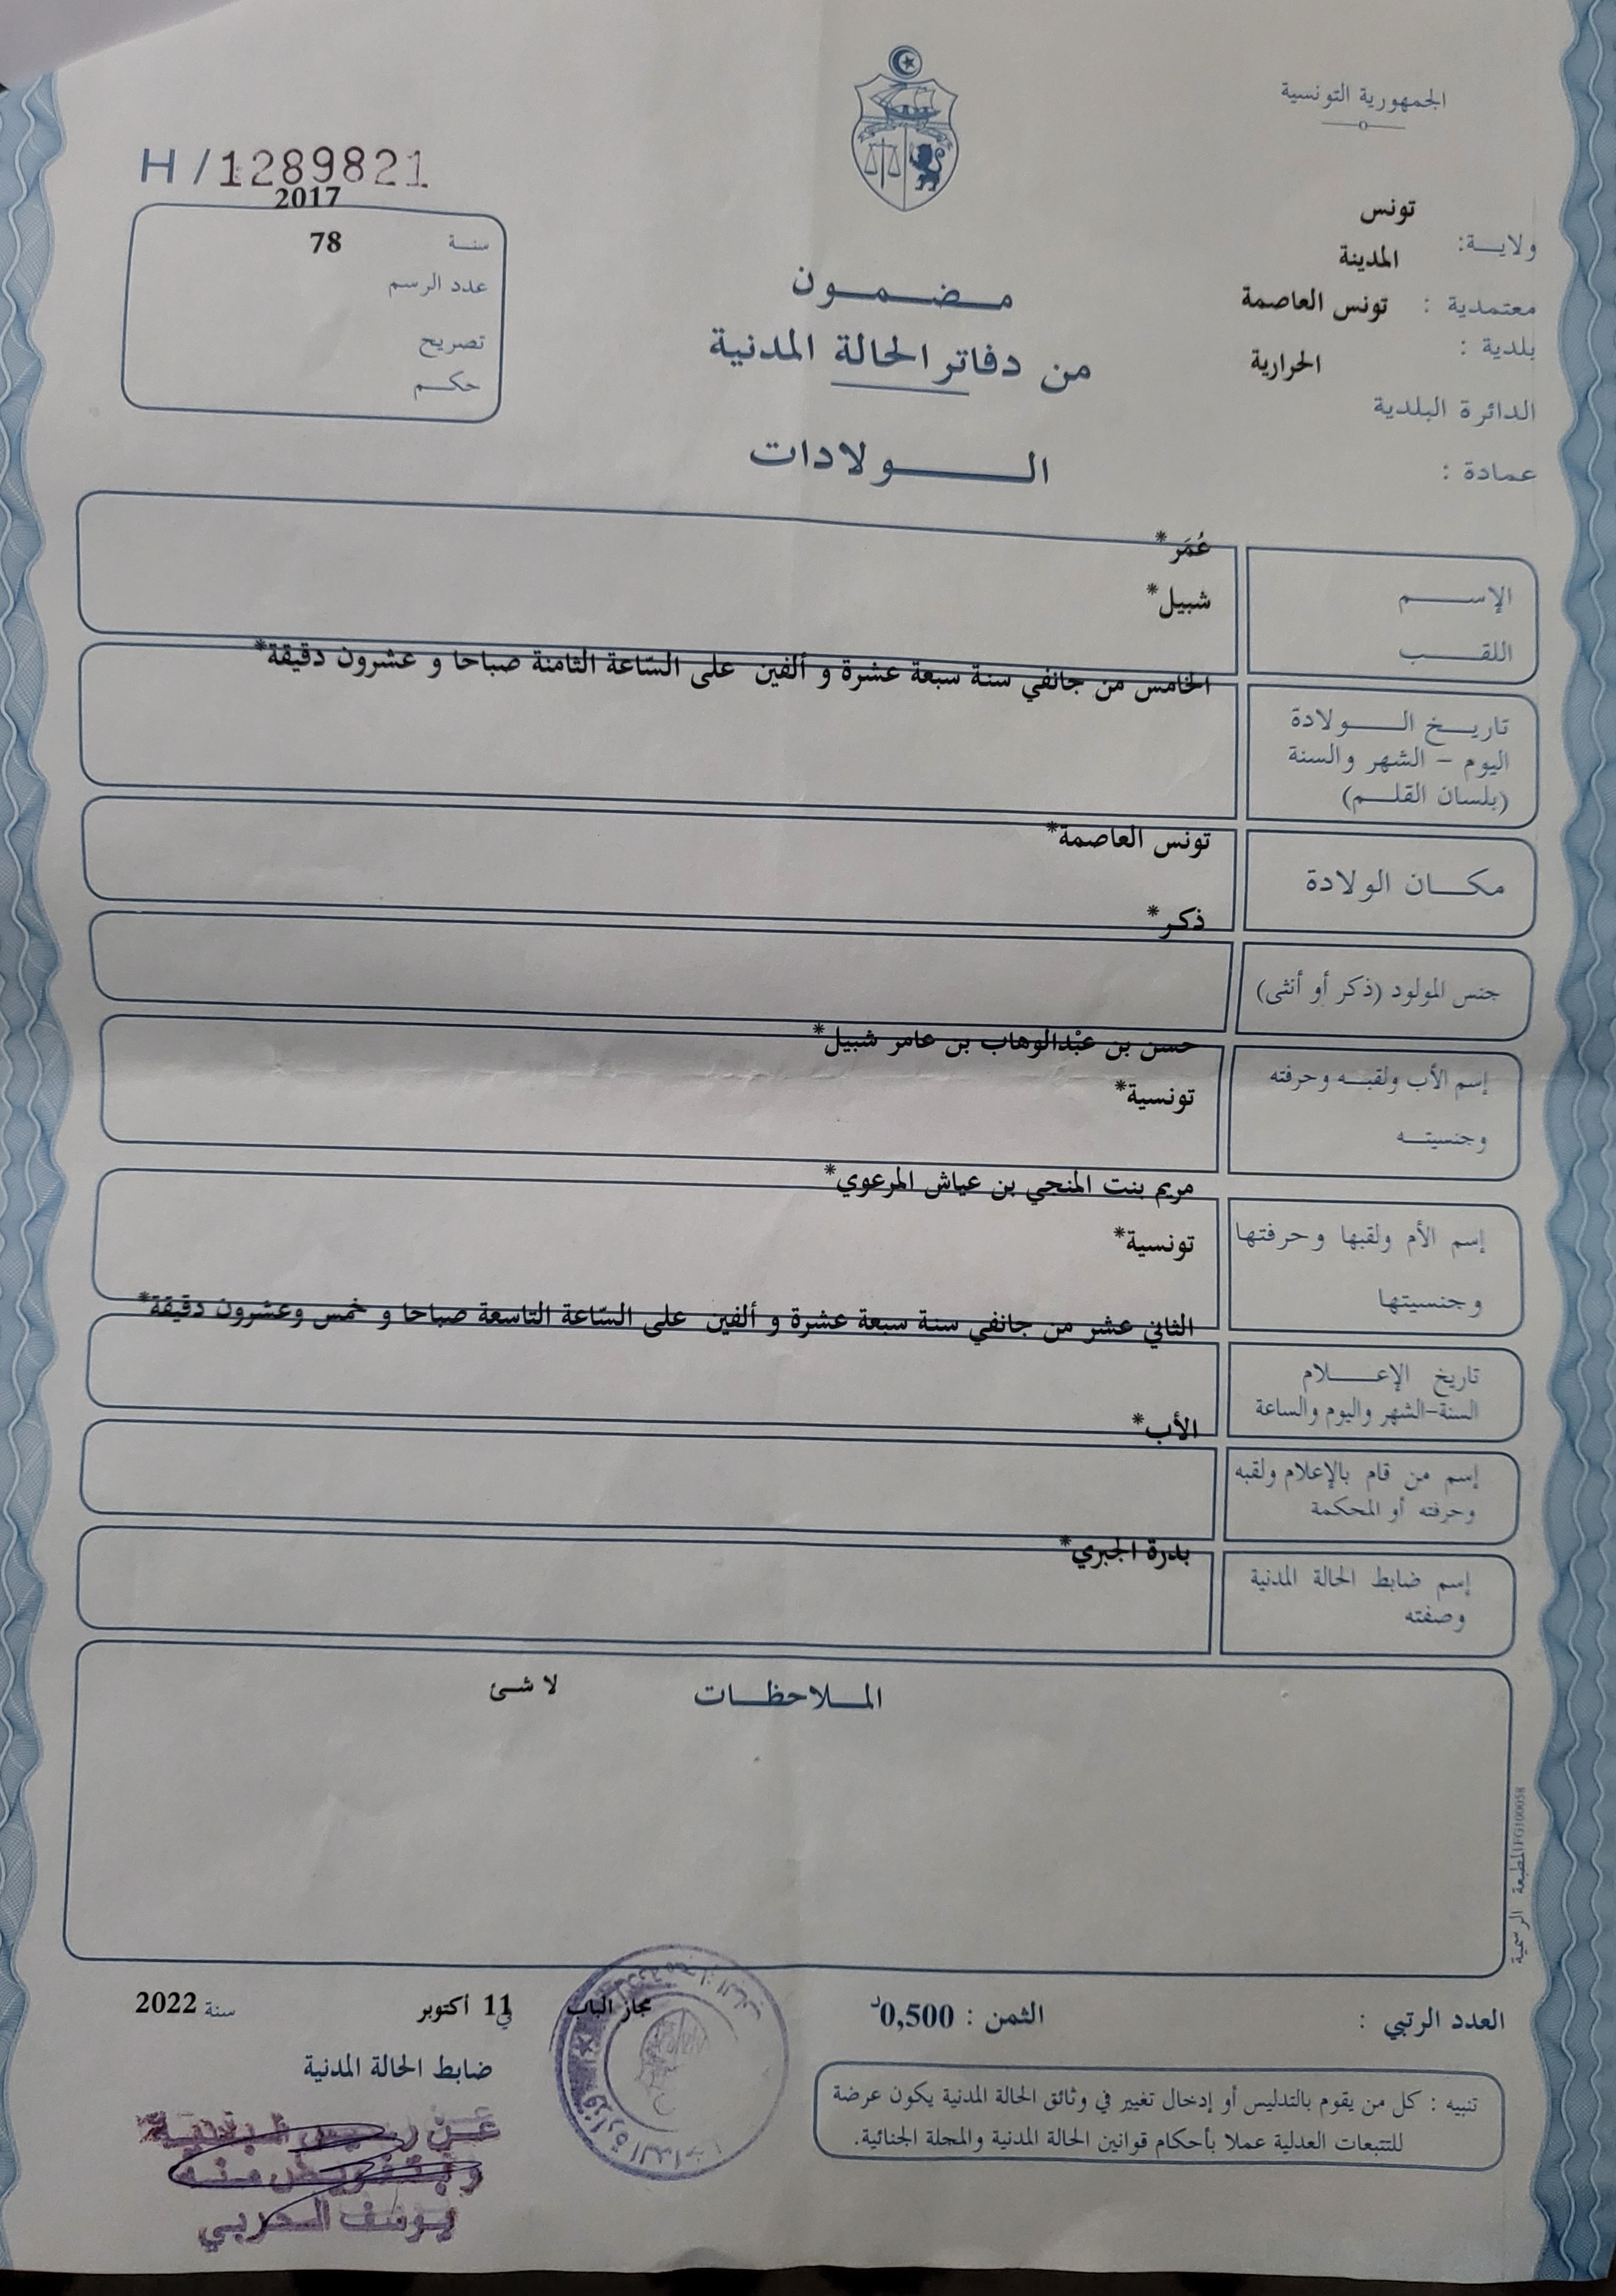 الجمهورية التونسية
H/1289821
2017
سنة 78
عدد الرسم
تصريح
حكم
تونس
ولاية:
المدينة
معتمدية : تونس العاصمة
بلدية :
الحرارية
الدائرة البلدية
عمادة :
مضمون
من دفاتر الحالة المدنية
الولادات
عُمَر*
الإسم
شبيل*
اللقب
الخامس من جانفي سنة سبعة عشرة و ألفين على السّاعة الثامنة صباحا و عشرون دقيقة*
تاريخ الولادة
اليوم - الشهر والسنة
(بلسان القلم)
تونس العاصمة*
مكان الولادة
ذكر*
جنس المولود (ذكر أو أنثى)
حسن بن عبْدالوهاب بن عامر شبيل*
إسم الأب ولقبه وحرفته
تونسية*
وجنسيته
مريم بنت المنجي بن عياش المرعوي*
إسم الأم ولقبها وحرفتها
تونسية*
وجنسيتها
الثاني عشر من جانفي سنة سبعة عشرة و ألفين على السّاعة التاسعة صباحا و خمس وعشرون دقيقة*
تاريخ الإعلام
السنة-الشهر واليوم والساعة
الأب*
إسم من قام بالإعلام ولقبه
وحرفته أو المحكمة
بدرة الجبري*
إسم ضابط الحالة المدنية
وصفته
الملاحظات لا شئ
المطبعة الرسمية PG100058
العدد الرتبي : الثمن : 0,500د
مجاز الباب في 11 أكتوبر سنة 2022
ضابط الحالة المدنية
تنبيه : كل من يقوم بالتدليس أو إدخال تغيير في وثائق الحالة المدنية يكون عرضة
للتتبعات العدلية عملا بأحكام قوانين الحالة المدنية والمجلة الجنائية.
عن رئيس البلدية
وبتفويض منه
يوسف الحربي